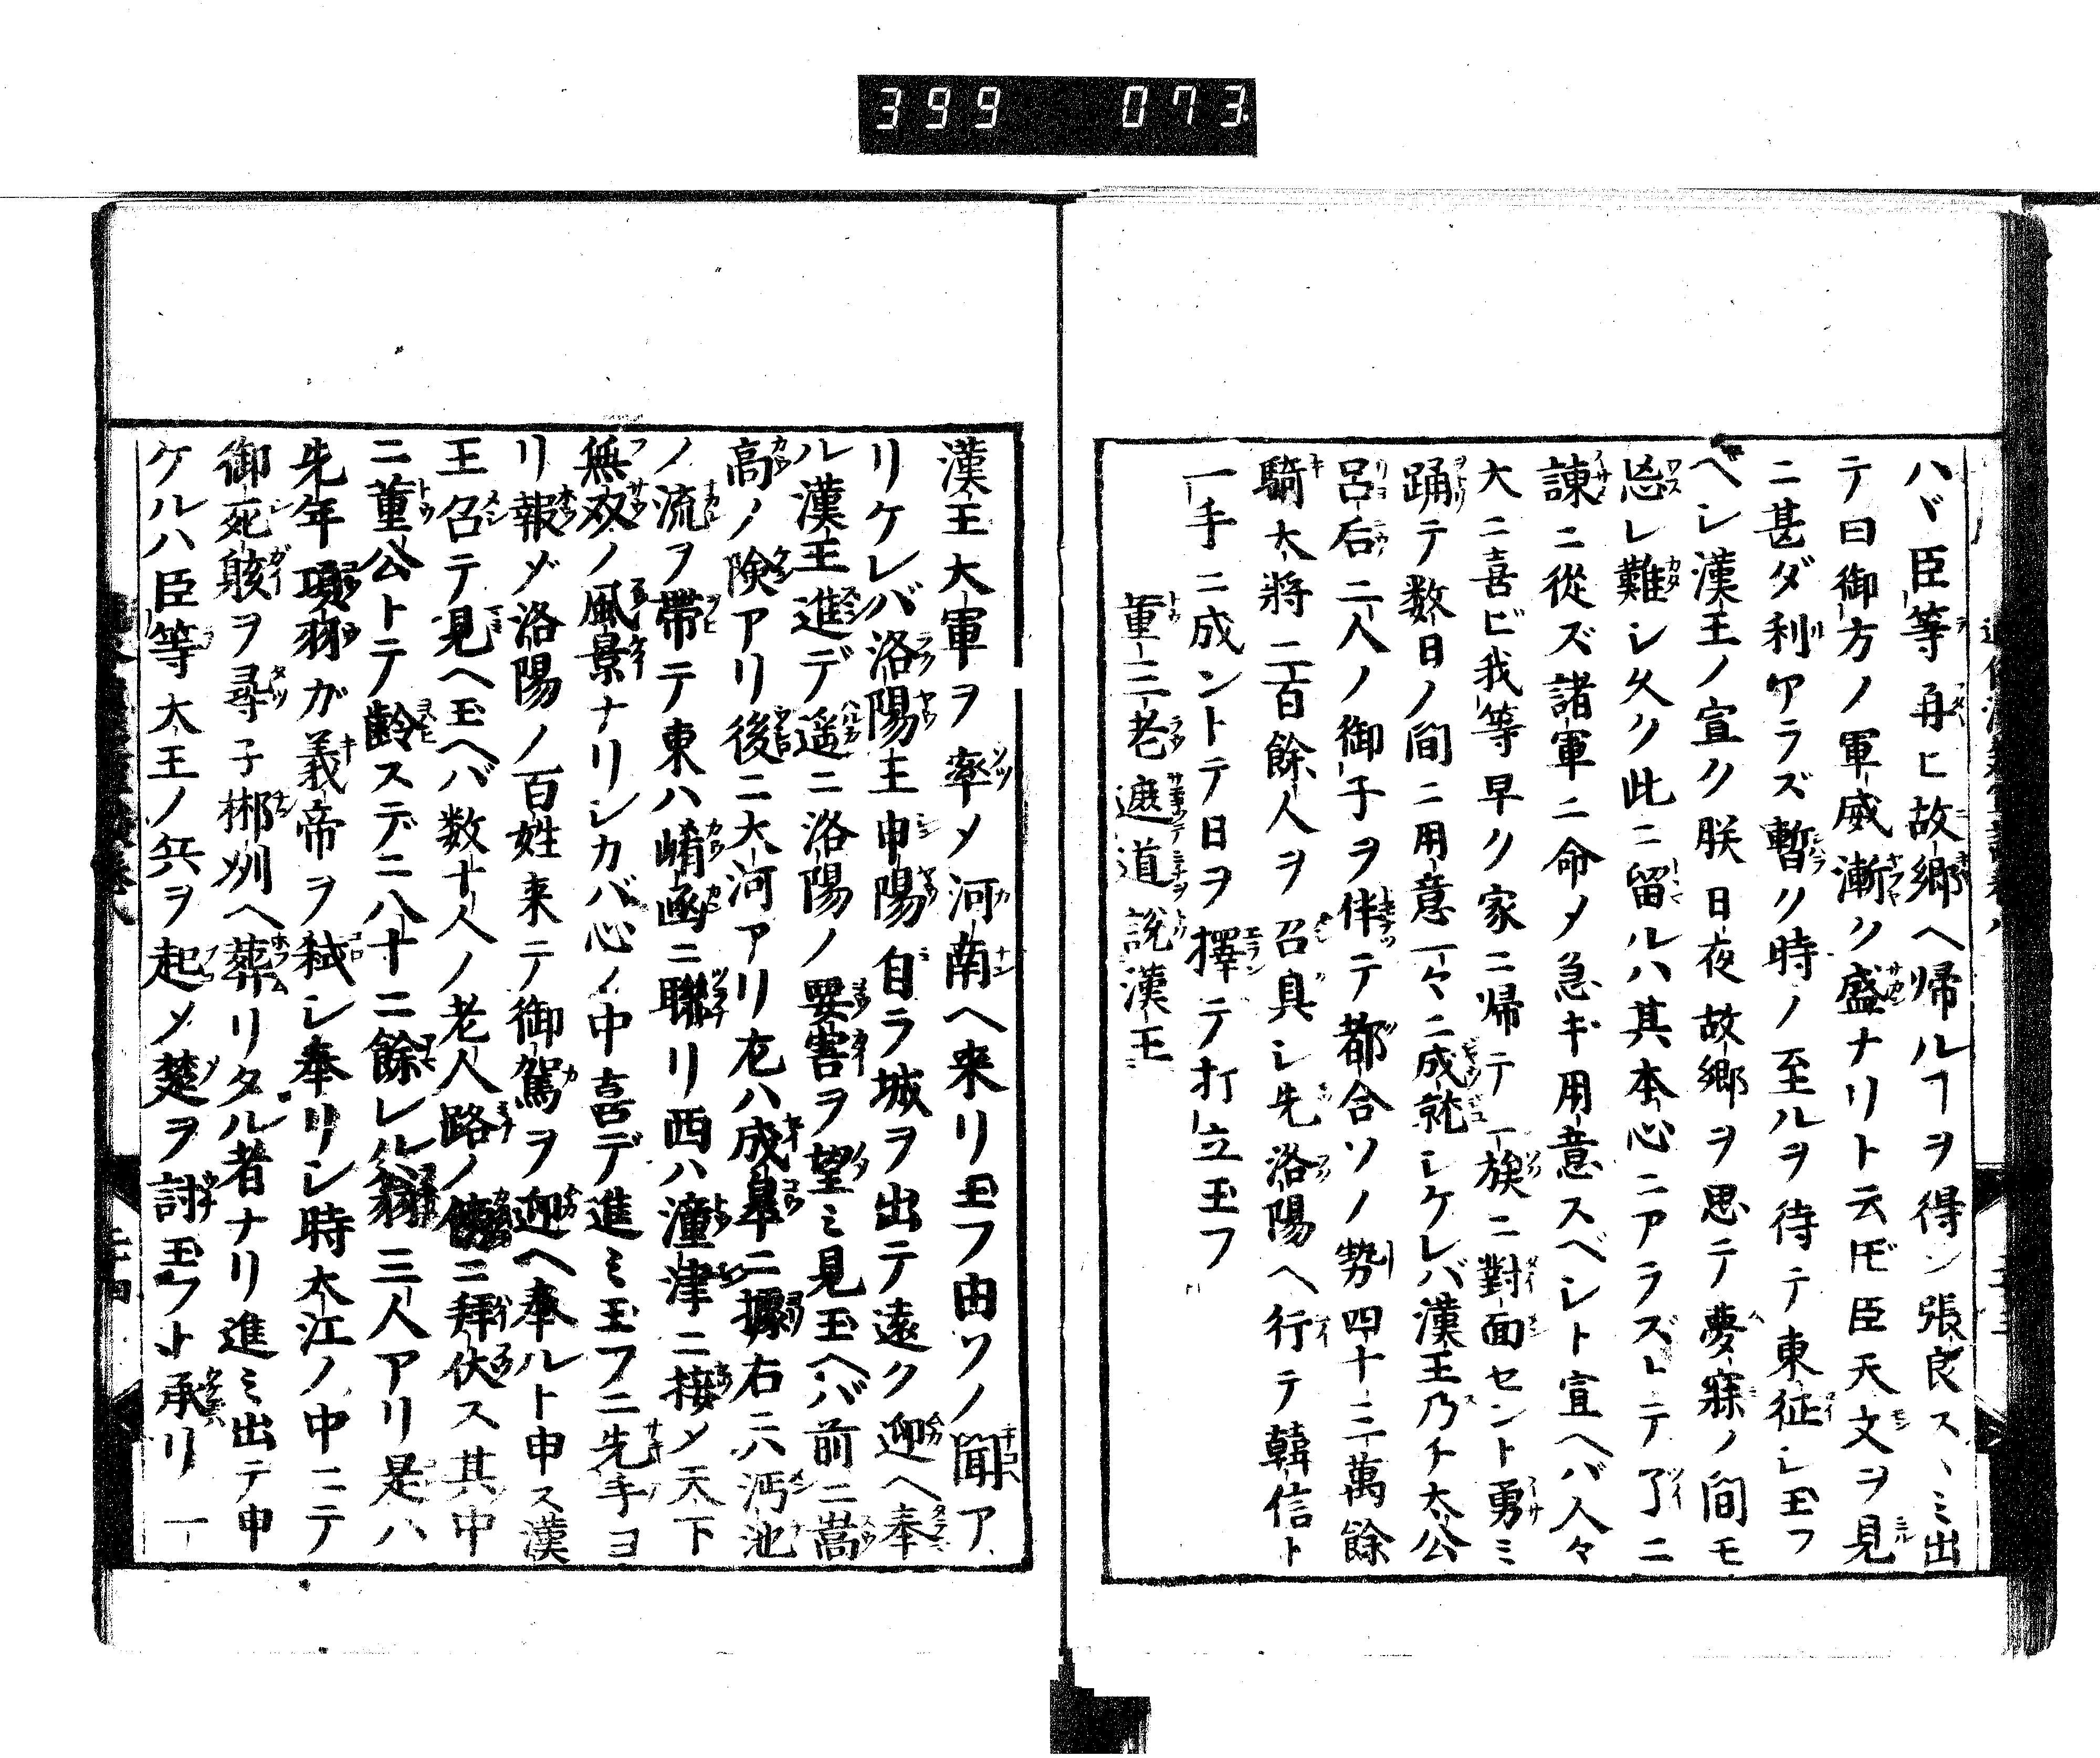 399 073
ハヾ臣等再ヒ故郷ヘ帰ルヿヲ得ン張良スヽミ出
テ曰御方ノ軍威漸ク盛ナリト云𪜈臣天文ヲ見
ニ甚ダ利アラズ暫ク時ノ至ルヲ待テ東征シ玉フ
ベシ漢王ノ宣ク朕日夜故郷ヲ思テ夢寐ノ間モ
忘レ難シ久ク此ニ留ルハ其本心ニアラズトテ了ニ
諫ニ從ズ諸軍ニ命メ急ギ用意スベシト宣ヘバ人々
大ニ喜ビ我等早ク家ニ帰テ一族ニ對面セント勇ミ
踊テ数日ノ間ニ用意一々ニ成就シケレバ漢王乃チ太公
呂后二人ノ御子ヲ伴テ都合ソノ勢四十三萬餘
騎大将二百餘人ヲ召具シ先洛陽ヘ行テ韓信ト
一手ニ成ントテ日ヲ擇テ打立玉フ
董三老遮道説漢王
漢王大軍ヲ率メ河南ヘ来リ玉フ由ソノ聞ア
リケレバ洛陽主申陽自ラ城ヲ出テ遠ク迎ヘ奉
ル漢王進デ遥ニ洛陽ノ要害ヲ望ミ見玉ヘバ前ニ嵩
高ノ険アリ後ニ大河アリ左ハ成皐ニ據右ハ沔池
ノ流ヲ帯テ東ハ崤函ニ聯リ西ハ潼津ニ接メ天下
無双ノ風景ナリシカバ心ノ中喜デ進ミ玉フニ先手ヨ
リ報メ洛陽ノ百姓来テ御駕ヲ迎ヘ奉ルト申ス漢
王召テ見ヘ玉ヘバ数十人ノ老人路ノ傍ニ拜伏ス其中
ニ董公トテ齢スデニ八十ニ餘レル翁三人アリ是ハ
先年項羽ガ義帝ヲ弑シ奉リシ時大江ノ中ニテ
御死骸ヲ尋子郴州ヘ葬リタル者ナリ進ミ出テ申
ケルハ臣等大王ノ兵ヲ起メ楚ヲ討玉フト承リ一